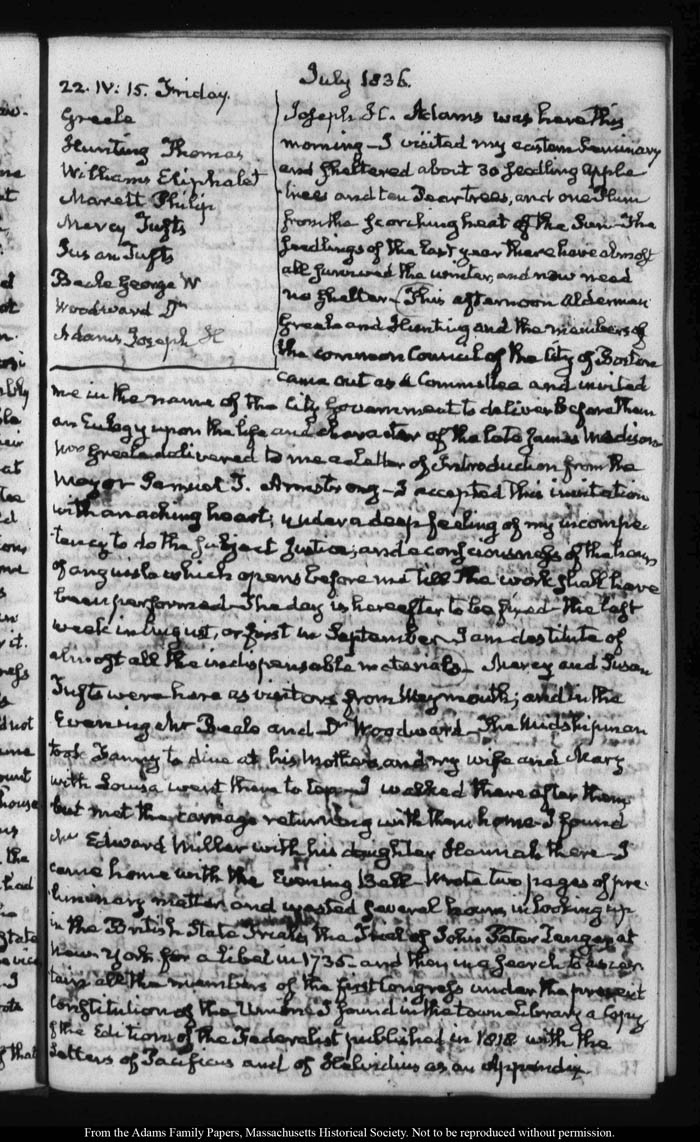 July 1836.
22. IV: 15. Friday.
Greele
Hunting Thomas
Williams Eliphalet
Marett Philip
Mercy Tufts
Susan Tufts
Beale George W
Woodward Dr
Adams Joseph H
Joseph H. Adams was here this
morning — I visited my eastern Seminary
and sheltered about 30 seedling apple
trees and ten Pear trees, and one Plum
from the scorching heat of the Sun — The
seedlings of the last year there have almost
all survived the winter, and now need
no shelter — This afternoon Alderman
Greele and Hunting and the members of
the common Council of the City of Boston
came out as a Committee and invited
me in the name of the City Government to deliver before them
an Eulogy upon the life and character of the late James Madison
Mr Greele delivered to me a Letter of Introduction from the
Mayor Samuel T. Armstrong — I accepted this invitation
with an aching heart; under a deep feeling of my incompe-
tency to do the subject justice; and a consciousness of the hours
of anguish which opens before me till the work shall have
been performed — The day is hereafter to be fixed — the last
week in August, or first in September — I am destitute of
almost all the indispensable materials — Mercy and Susan
Tufts were here as visitors from Weymouth; and in the
Evening Mr Beale and Dr Woodward — The Midshipman
took Fanny to dine at his Mothers, and my wife and Mary
with Louisa went there to tea — I walked there after them
but met the carriage returning with them home — I found
Mr Edward Miller with his daughter Hannah there — I
came home with the Evening Bell — Wrote two pages of pre-
liminary matter and wasted several hours in looking up
in the British State Trials, the Trial of John Peter Zenger at
New-York for a libel in 1735 — and then in a search to ascer-
tain all the members of the first Congress under the present
Constitution of the Union — I found in the town Library a Copy
of the Edition of the Federalist published in 1818 with the
Letters of Pacificus and of Helvidius as an Appendix.
From the Adams Family Papers, Massachusetts Historical Society. Not to be reproduced without permission.